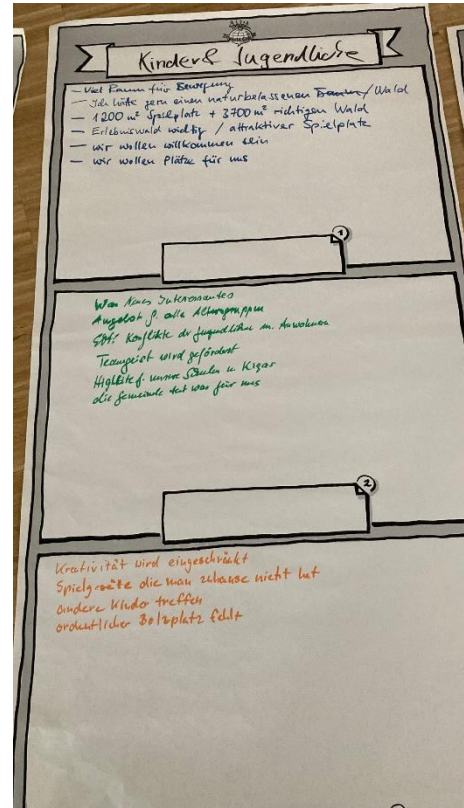 Kinder & Jugendliche
- Viel Raum für Bewegung
- Ich hätte gern einen naturbelassenen / Wald
- 1200 m² Spielplatz + 3700 m² richtigen Wald
- Erlebniswald wichtig / attraktiver Spielplatz
- wir wollen willkommen sein
- wir wollen Plätze für uns
1
Was Neues Interessantes
Angebot f. alle Altersgruppen
Konflikte der Jugendlichen m. Anwohnern
Teamgeist wird gefördert
Highlite f. unsere Schulen u. Kigas
die Gemeinde tut was für uns
2
Kreativität wird eingeschränkt
Spielgeräte die man zuhause nicht hat
andere Kinder treffen
ordentlicher Bolzplatz fehlt